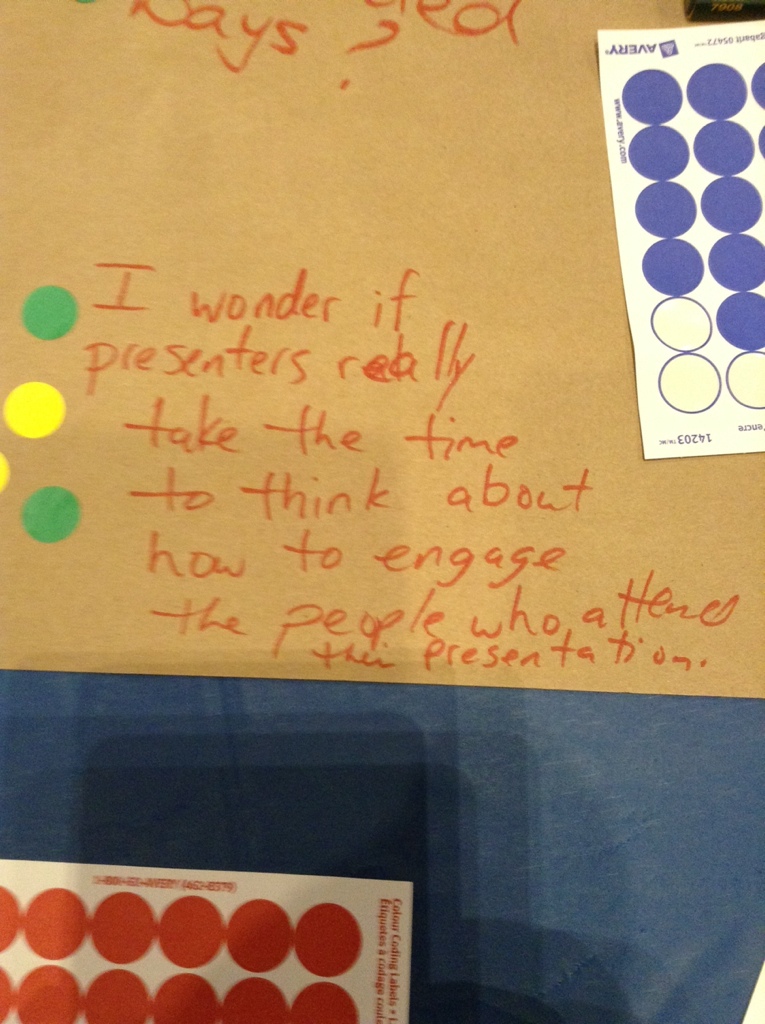 Days ?
I wonder if
presenters really
take the time
to think about
how to engage
the people who attend
their presentation.
AVERY®
gabarit 05472
www.avery.com
14203
encre
1-800-GO-AVERY (462-8379)
Colour Coding Labels
Étiquettes à codage
7908